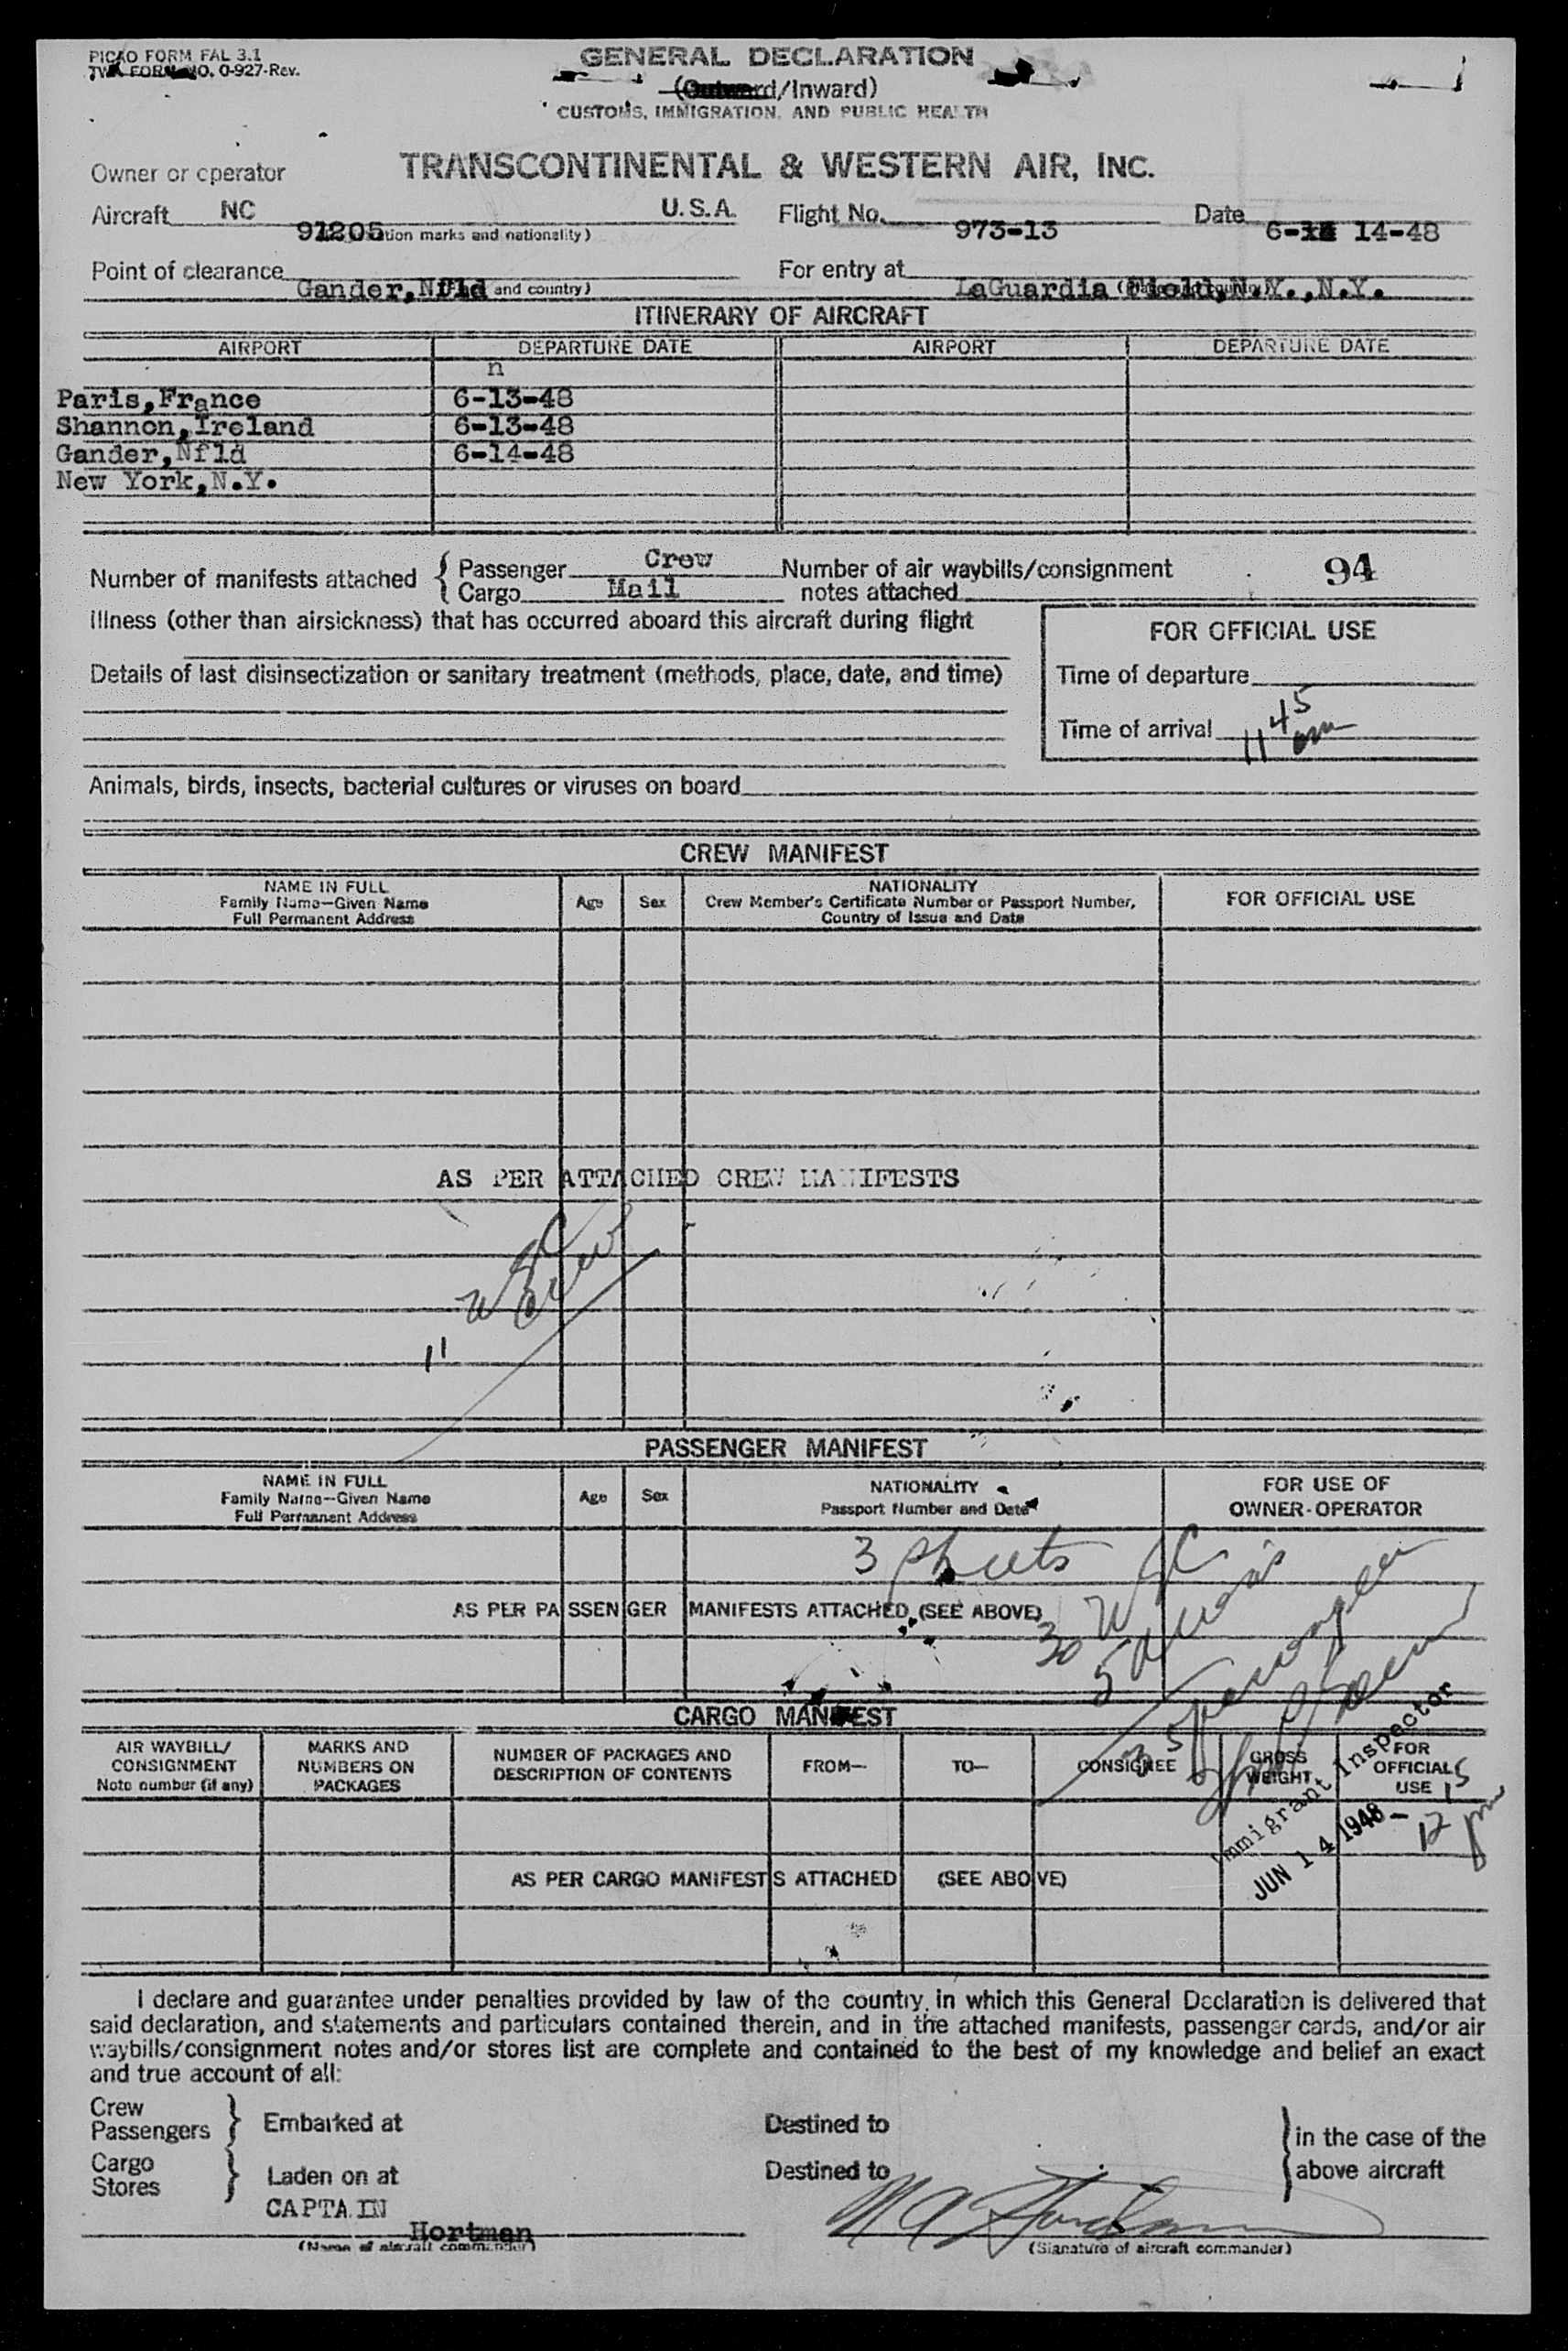 PICAO FORM FAL 3.1
TWA FORM NO. O-927-Rev.
GENERAL DECLARATION
(Outward/Inward)
CUSTOMS, IMMIGRATION, AND PUBLIC HEALTH
Owner or operator TRANSCONTINENTAL & WESTERN AIR, INC.
Aircraft NC 91205 U.S.A. Flight No. 973-13 Date 6- 14-48
tion marks and nationality)
Point of clearance Gander,Nfld and country) For entry at LaGuardia Field,N.Y.,N.Y.
ITINERARY OF AIRCRAFT
AIRPORT DEPARTURE DATE AIRPORT DEPARTURE DATE
n
Paris,France 6-13-48
Shannon,Ireland 6-13-48
Gander,Nfld 6-14-48
New York,N.Y.
Number of manifests attached { Passenger Crew Number of air waybills/consignment 94
Cargo Mail notes attached
Illness (other than airsickness) that has occurred aboard this aircraft during flight
FOR OFFICIAL USE
Details of last disinsectization or sanitary treatment (methods, place, date, and time)
Time of departure
Time of arrival 11 45 am
Animals, birds, insects, bacterial cultures or viruses on board
CREW MANIFEST
NAME IN FULL
Family Name—Given Name
Full Permanent Address
Age Sex
NATIONALITY
Crew Member's Certificate Number or Passport Number,
Country of Issue and Date
FOR OFFICIAL USE
AS PER ATTACHED CREW MANIFESTS
11 USC Crew
PASSENGER MANIFEST
NAME IN FULL
Family Name—Given Name
Full Permanent Address
Age Sex
NATIONALITY
Passport Number and Date
FOR USE OF
OWNER-OPERATOR
3 sheets
AS PER PASSENGER MANIFESTS ATTACHED (SEE ABOVE)
30 USC
5 aliens
35 passengers
Immigrant Inspector
JUN 14 1948 - 12 15 pm
CARGO MANIFEST
AIR WAYBILL/
CONSIGNMENT
Note number (if any)
MARKS AND
NUMBERS ON
PACKAGES
NUMBER OF PACKAGES AND
DESCRIPTION OF CONTENTS
FROM— TO— CONSIGNEE
GROSS
WEIGHT
FOR
OFFICIAL
USE
AS PER CARGO MANIFESTS ATTACHED (SEE ABOVE)
I declare and guarantee under penalties provided by law of the country, in which this General Declaration is delivered that
said declaration, and statements and particulars contained therein, and in the attached manifests, passenger cards, and/or air
waybills/consignment notes and/or stores list are complete and contained to the best of my knowledge and belief an exact
and true account of all:
Crew
Passengers } Embarked at Destined to
Cargo
Stores } Laden on at Destined to
} in the case of the
above aircraft
CAPTAIN
Hortman
(Name of aircraft commander) (Signature of aircraft commander)